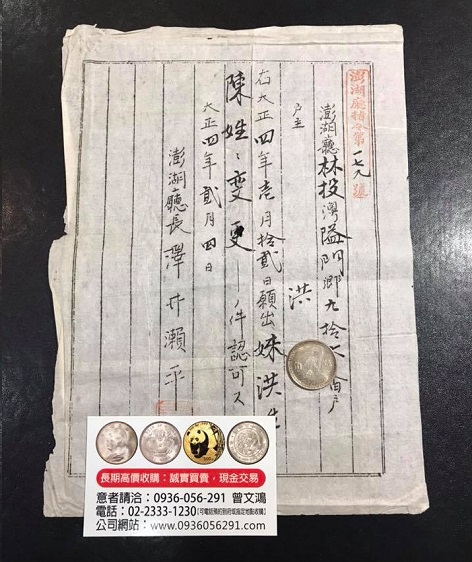 澎湖廳指令第一七九號
澎湖廳林投澳隘門鄉九拾
戶主
洪
右大正四年壹月拾貳日願出妹洪
陳姓ニ変更ノ件認可ス
大正四年貳月四日
澎湖廳長
長期高價收購：誠實買賣，現金交易
意者請洽：0936-056-291 曾文鴻
電話：02-2333-1230【可電話預約到府或指定地點收購】
公司網站：www.0936056291.com